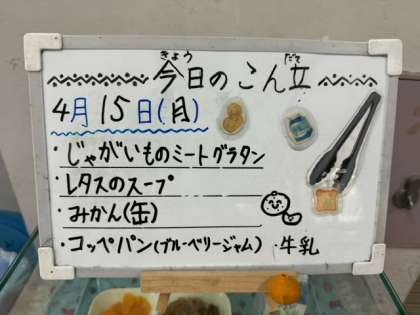 きょう だて
今日のこん立
4月15日(月)
・じゃがいものミートグラタン
・レタスのスープ
・みかん(缶)
・コッペパン(ブルーベリージャム) ・牛乳